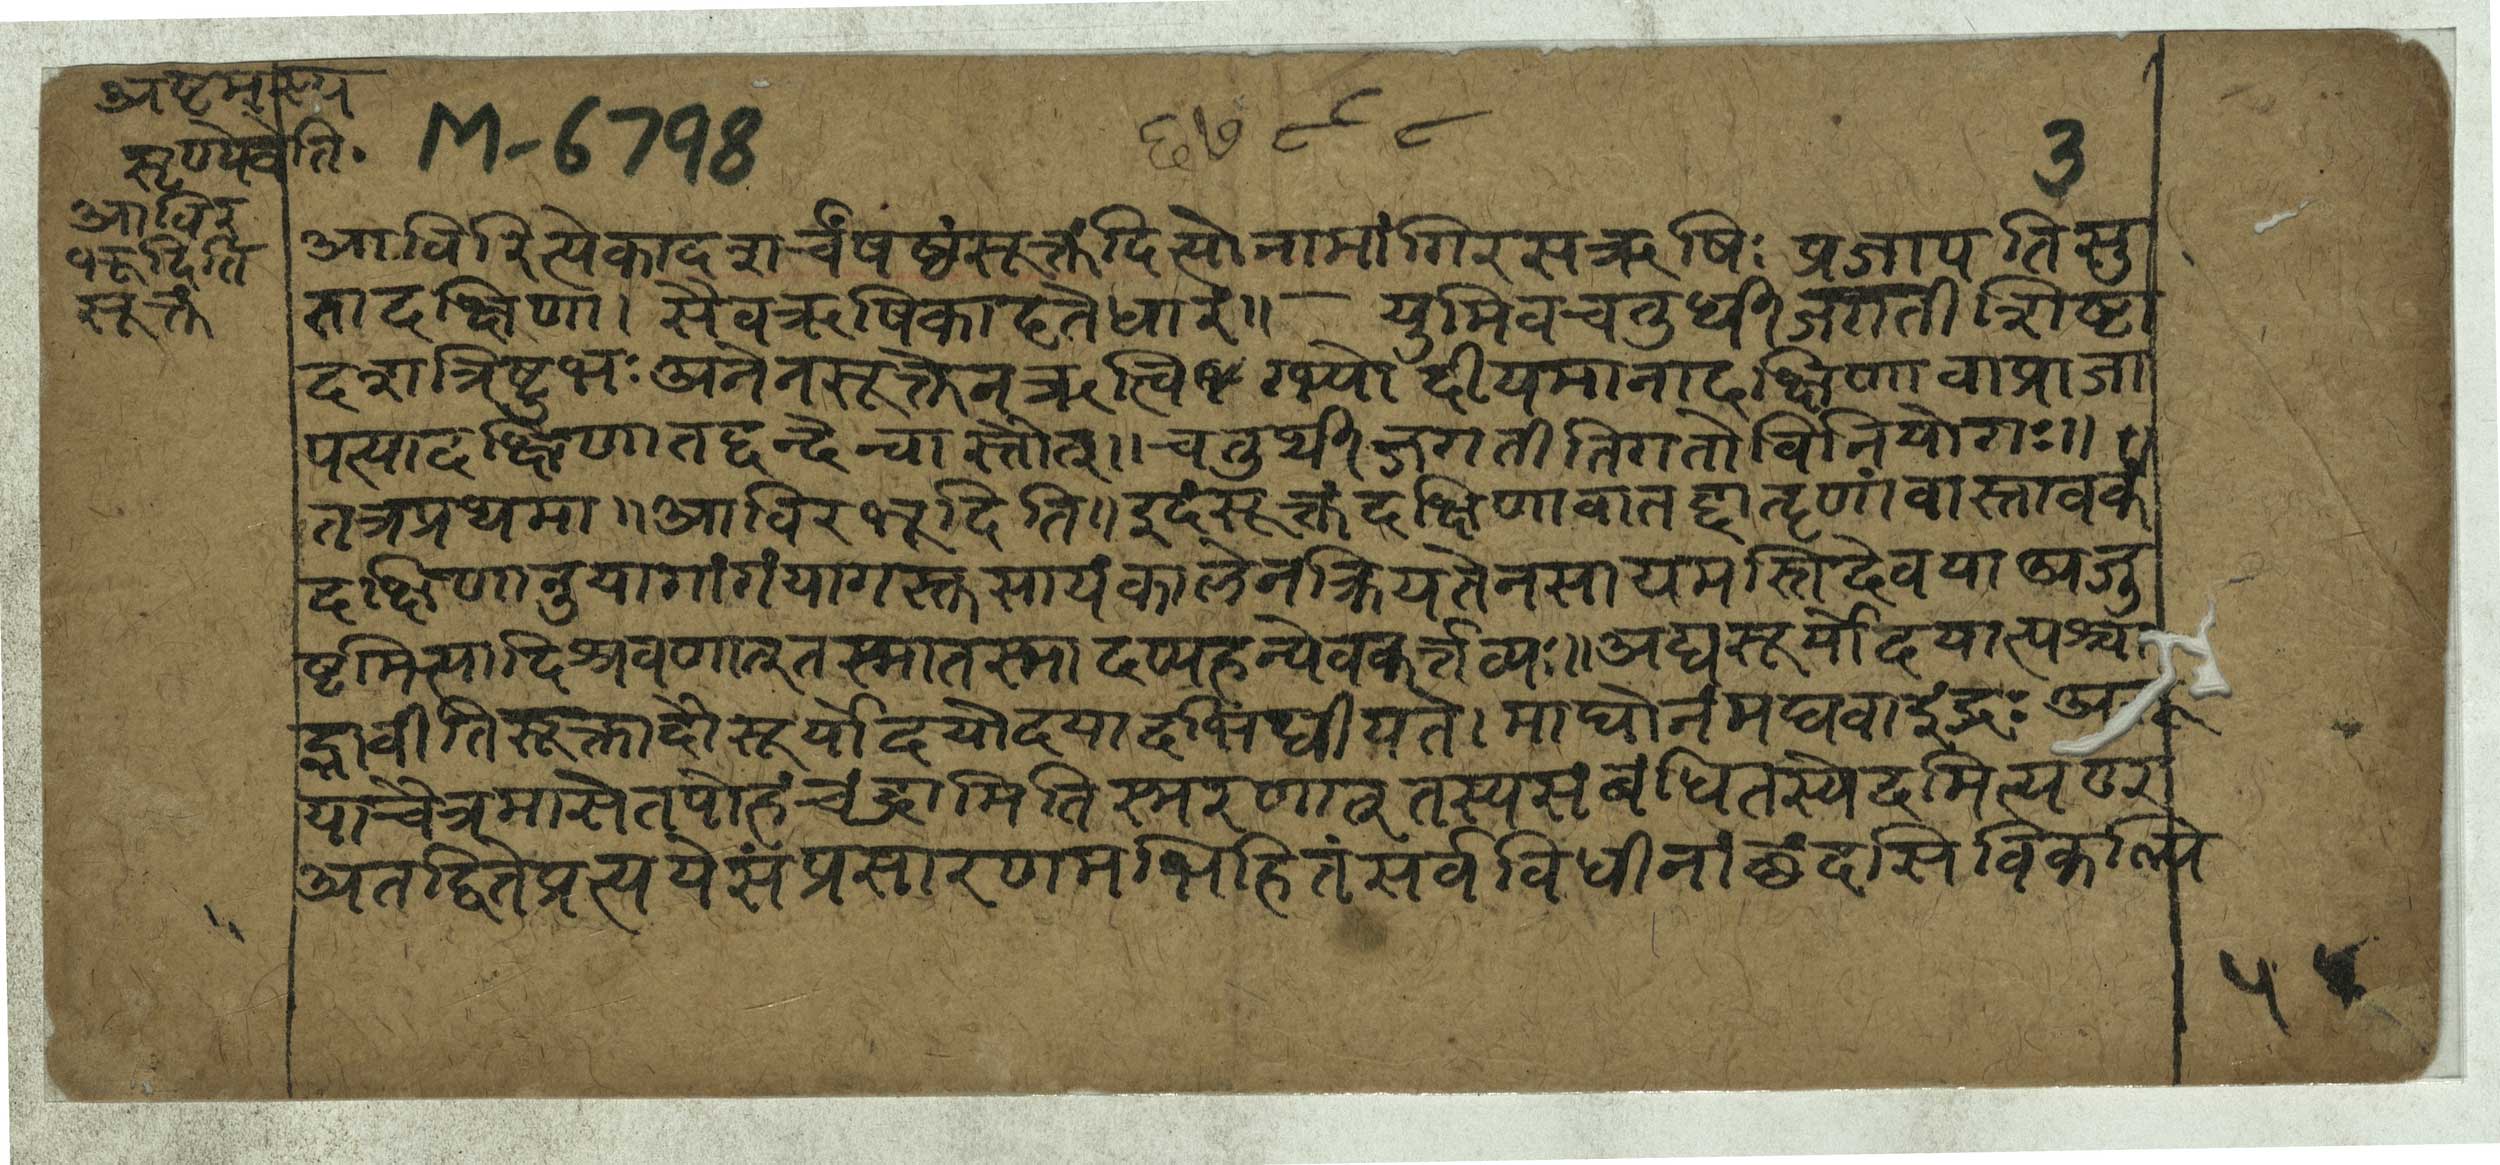 अष्टमस्य
सृण्येवेति.
M-6798
६७९८
3
आविर
भूदिति
सूक्तं
आविरित्येकादशर्चंषष्ठंसूक्तंदिव्योनामांगिरसऋषिः प्रजापतिसु
तादक्षिणा। सैवऋषिकादृतेधारं॥ — युमिवचतुर्थी जगतीशिष्टा
दशत्रिष्टुभः अनेनसूक्तेनऋत्वि ग्भ्यो दीयमानादक्षिणावाप्राजा
पत्यादक्षिणातद्दन्दैन्वास्तौत्॥ चतुर्थी जगतीतिगतोविनियोगः॥
तत्रप्रथमा॥ आविरभूदिति॥ इदंसूक्तंदक्षिणावातद्दातॄणांवास्तावकं
दक्षिणानुयागांगंयागस्तसायंकालेनक्रियतेनसायमस्तिदेवया अजु
ष्टमित्यादिश्रवणात्तस्मातस्मादप्यहन्येवकर्त्तव्यः॥ अद्यसूर्योदयात्पश्चा
द्भावीतिसूक्तादौसूर्योदयोदयादभिधीयते। माघोनंमघवाइंद्रः
याचैत्रमासेतपोहंचंद्रामितिस्मरणात् तस्यसंबंधितस्येदमित्यण्श
अतद्धितेप्रत्ययेसंप्रसारणमभिहितंसर्वविधीनांछंदसिविकल्पि
५५